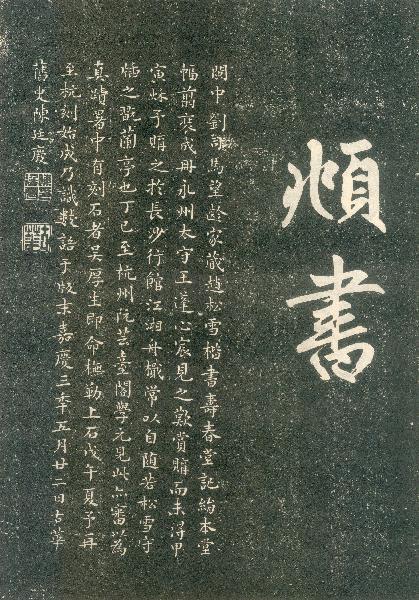 頫書
閩中劉司馬望齡家藏趙松雪楷書壽春堂記絹本堂
幅翦裱成冊永州太守王蓬心宸見之歎賞購而未得甲
寅秌予購之於長沙行館江湘舟檝常以自随若松雪守
之翫蘭亭也丁巳至杭州阮芸臺閣學元見此亦審為
真蹟署中有刻石者吳厚生即命橅勒上石戊午夏予再
至杭刻始成乃識數語于帋末嘉慶三年五月廿二日古華
舊史陳廷慶